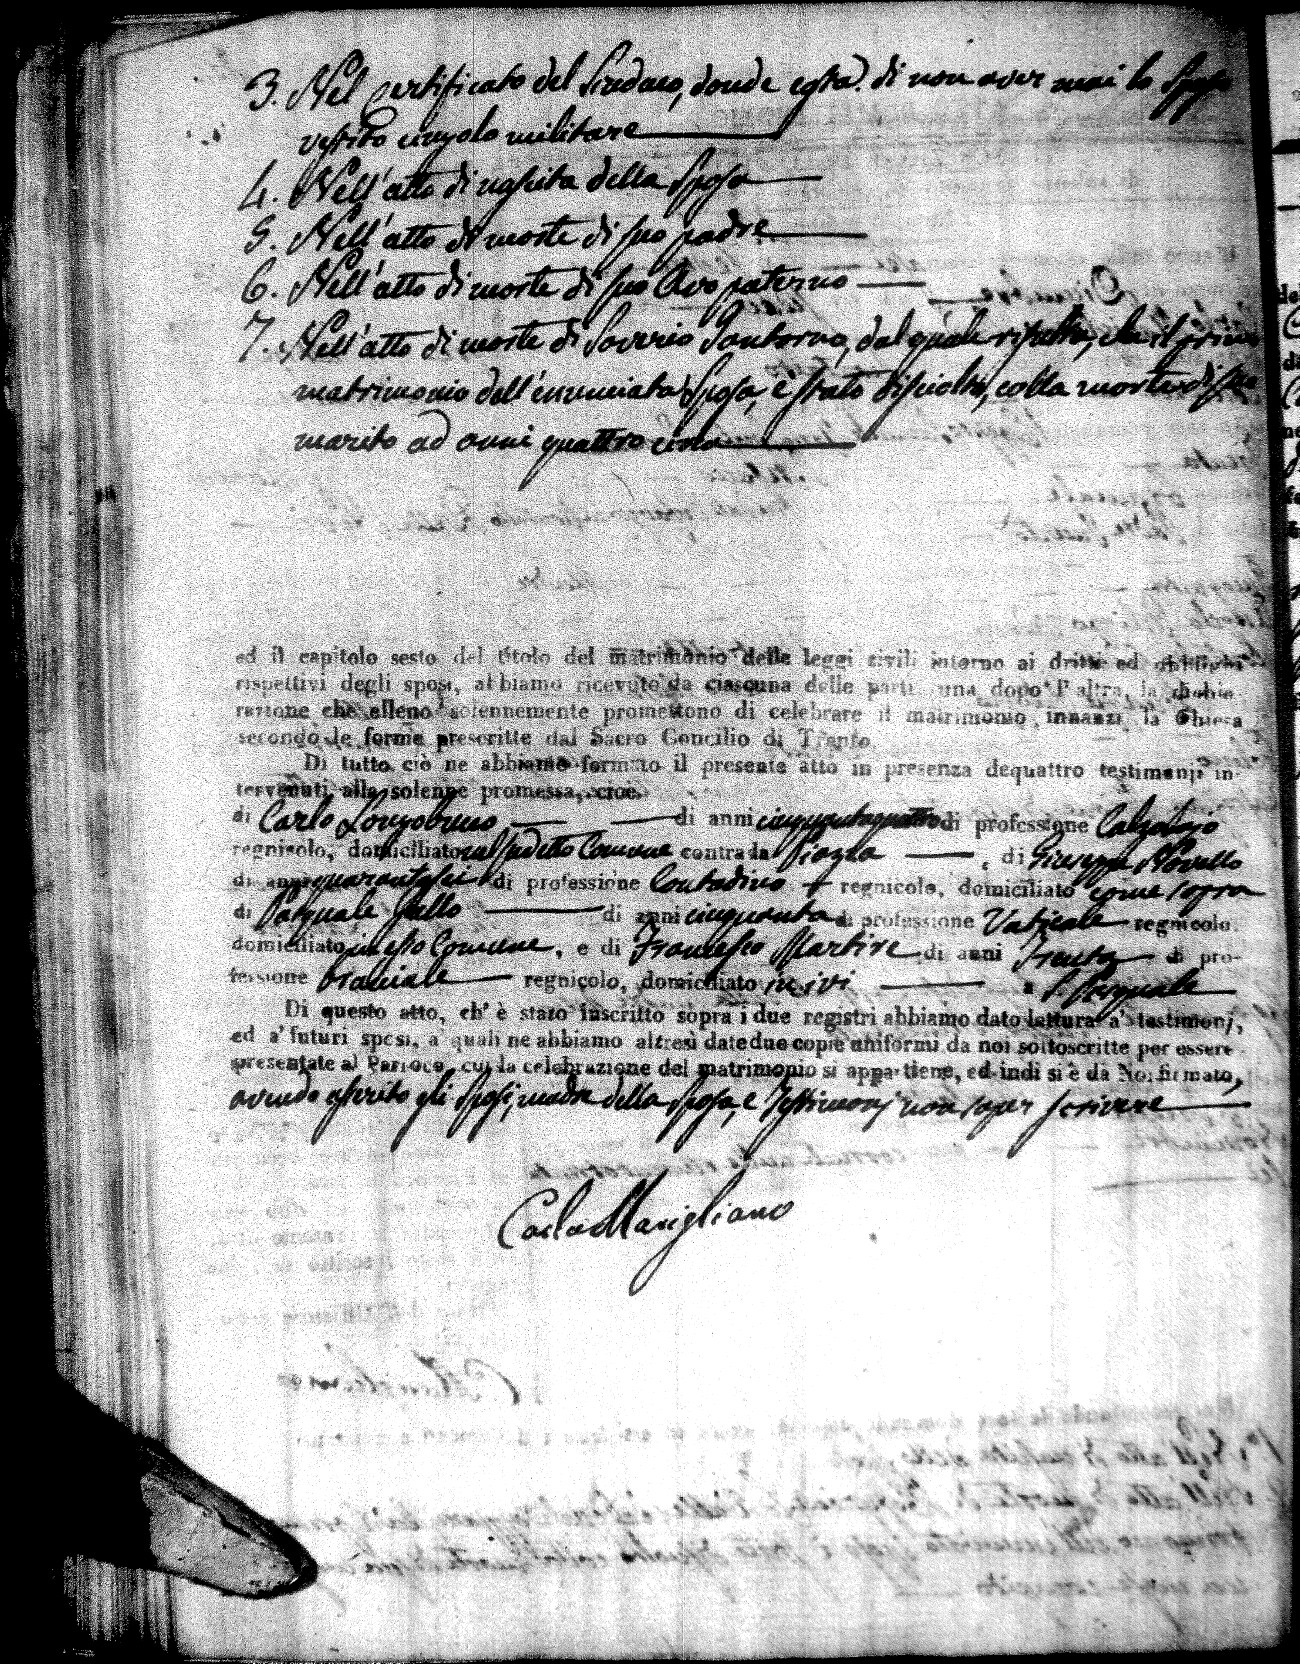 3. Nel Certificato del Sindaco, donde costa di non aver mai lo Sposo
vestito cingolo militare
4. Nell'atto di nascita della Sposa
5. Nell'atto di morte di suo padre
6. Nell'atto di morte di suo Avo paterno
7. Nell'atto di morte di Saverio Santoro, dal quale risulta, che il primo
matrimonio dell'enunciata Sposa, è stato disciolto, colla morte di suo
marito ad anni quattro circa
ed il capitolo sesto del titolo del matrimonio delle leggi civili intorno ai dritti ed obblighi
rispettivi degli sposi, abbiamo ricevuto da ciascuna delle parti una dopo l'altra, la dichia-
razione che elleno solennemente promettono di celebrare il matrimonio innanzi la Chiesa
secondo le forme prescritte dal Sacro Concilio di Trento
Di tutto ciò ne abbiamo formato il presente atto in presenza dequattro testimonj in-
tervenuti alla solenne promessa, cioè.
di Carlo Longobucco di anni cinquantaquattro di professione Calzolajo
regnicolo, domiciliato nel sudetto Comune contrada Piazza , di Giuseppe Novello
di anni quarantasei di professione Contadino regnicolo, domiciliato come sopra
di Pasquale Gallo di anni cinquanta di professione Vaticale regnicolo
domiciliato in esso Comune, e di Francesco Martire di anni Trenta di pro-
fessione bracciale regnicolo, domiciliato in ivi a S. Pasquale
Di questo atto, ch' è stato inscritto sopra i due registri abbiamo dato lettura a' testimonj,
ed a' futuri sposi, a' quali ne abbiamo altresì date due copie uniformi da noi sottoscritte per essere
presentate al Parroco, cui la celebrazione del matrimonio si appartiene, ed indi si è da Noi firmato,
avendo asserito gli Sposi, madre della Sposa, e Testimonj non saper scrivere
Carlo Marigliano